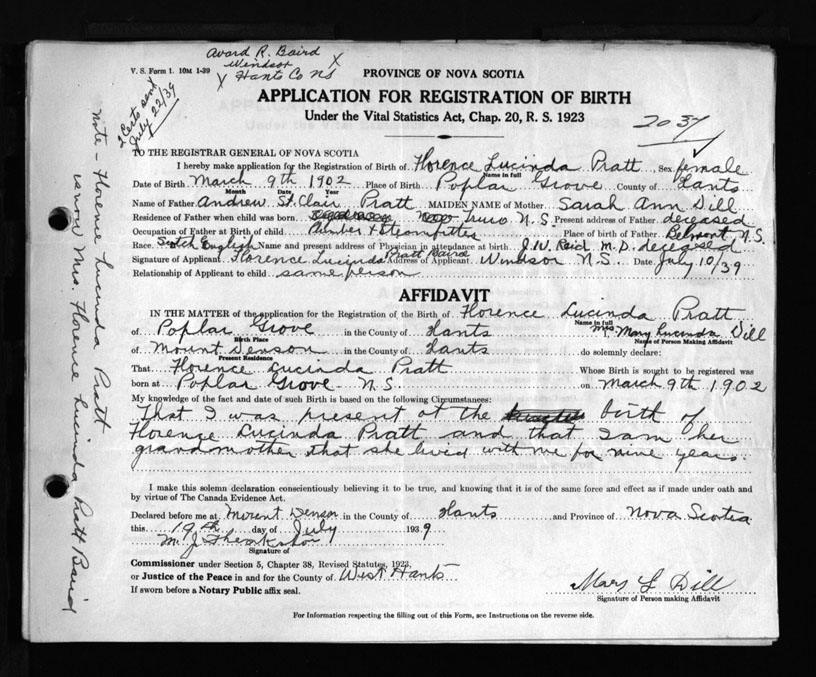 Avard R. Baird
Windsor
Hants Co NS
V. S. Form 1. 10M 1-39
2 Certs sent
July 22/39
PROVINCE OF NOVA SCOTIA
APPLICATION FOR REGISTRATION OF BIRTH
Under the Vital Statistics Act, Chap. 20, R. S. 1923
2037
TO THE REGISTRAR GENERAL OF NOVA SCOTIA
I hereby make application for the Registration of Birth of Florence Lucinda Pratt Sex female
Name in full
Date of Birth March 9th 1902 Place of Birth Poplar Grove County of Hants
Month Date Year
Name of Father Andrew St. Clair Pratt MAIDEN NAME of Mother Sarah Ann Dill
Residence of Father when child was born Truro N.S. Present address of Father deceased
Occupation of Father at Birth of Child Plumber & Steamfitter Place of birth of Father Belmont N.S.
Race Scotch English Name and present address of Physician in attendance at birth J.W. Reid M.D. deceased
Signature of Applicant Florence Lucinda Pratt Baird Address of Applicant Windsor N.S. Date July 10/39
Relationship of Applicant to child same person
AFFIDAVIT
IN THE MATTER of the application for the Registration of the Birth of Florence Lucinda Pratt
Name in full
of Poplar Grove in the County of Hants I, Mrs. Mary Lucinda Dill
Birth Place Name of Person Making Affidavit
of Mount Denson in the County of Hants do solemnly declare:
Present Residence
That Florence Lucinda Pratt Whose Birth is sought to be registered was
born at Poplar Grove N.S. on March 9th 1902
My knowledge of the fact and date of such Birth is based on the following Circumstances:
That I was present at the birth of
Florence Lucinda Pratt and that I am her
grandmother that she lived with me for nine years
I make this solemn declaration conscientiously believing it to be true, and knowing that it is of the same force and effect as if made under oath and
by virtue of The Canada Evidence Act.
Declared before me at Mount Denson in the County of Hants and Province of Nova Scotia
this 19th day of July 1939
M. J.
Signature of
Commissioner under Section 5, Chapter 38, Revised Statutes, 1923,
or Justice of the Peace in and for the County of West Hants
If sworn before a Notary Public affix seal.
Mary L Dill
Signature of Person making Affidavit
For Information respecting the filling out of this Form, see Instructions on the reverse side.
Note - Florence Lucinda Pratt
is now Mrs. Florence Lucinda Pratt Baird